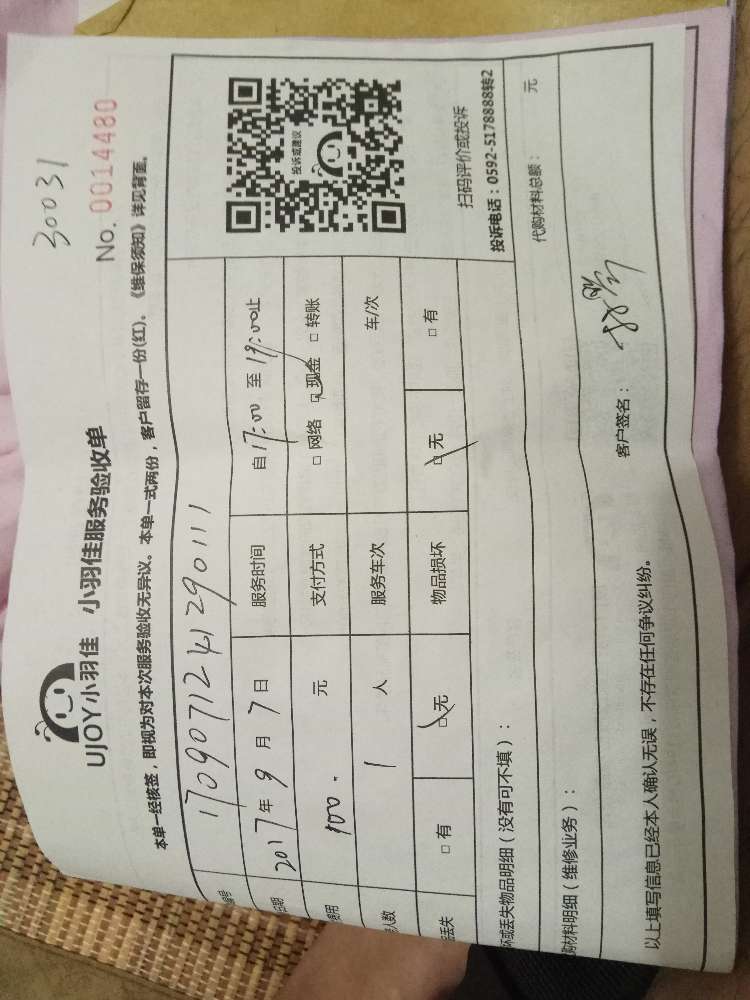 30031
UJOY小羽佳 小羽佳服务验收单
No. 0014480
本单一经核签，即视为对本次服务验收无异议。本单一式两份，客户留存一份(红)、《维保须知》详见背面。
编号 1709071241290111
日期 2017年9月7日 服务时间 自17:00至19:00止
费用 100. 元 支付方式 □ 网络 □ 现金 □ 转账
人数 1 人 服务车次 车/次
丢失 □ 有 □ 无 物品损坏 □ 无 □ 有
投诉或建议
扫码评价或投诉
投诉电话：0592-5178888转2
坏或丢失物品明细（没有可不填）：
购材料明细（维修业务）： 代购材料总额： 元
以上填写信息已经本人确认无误，不存在任何争议纠纷。 客户签名：